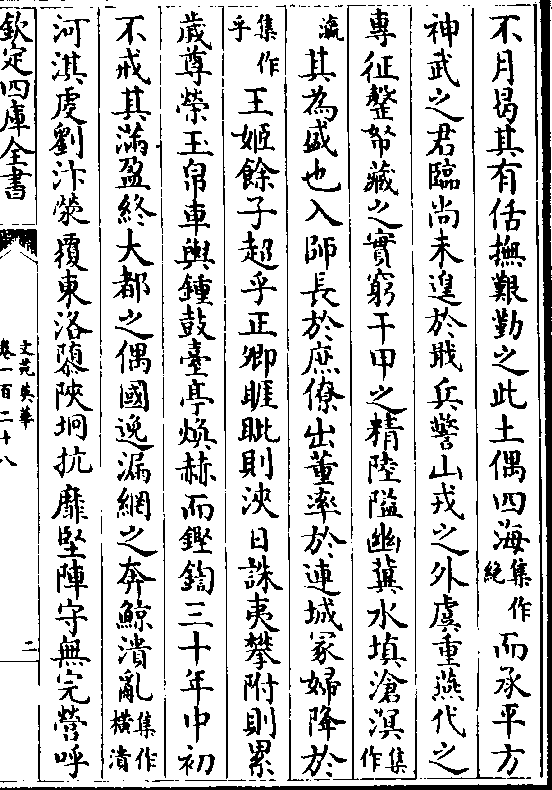 不月曷其有佸撫艱勤之此土偶四海集作絶而承平方
神武之君臨尚未遑於戢兵警山戎之外虞重燕代之
專征整帑藏之實窮干甲之精陸隘幽冀水填滄溟集作
瀛其為盛也入師長於庶僚出董率於連城冢婦降於
集作乎王姬餘子超乎正卿睚眦則浹日誅夷攀附則累
歲尊榮玉帛車輿鍾鼓臺亭煥赫而鏗鍧三十年中初
不戒其滿盈終大都之偶國逸漏網之奔鯨潰亂集作橫潰
河淇虔劉汴滎覆東洛隳陝坰抗靡堅陣守無完營呼
欽定四庫全書
文苑英華
卷一百二十八
二